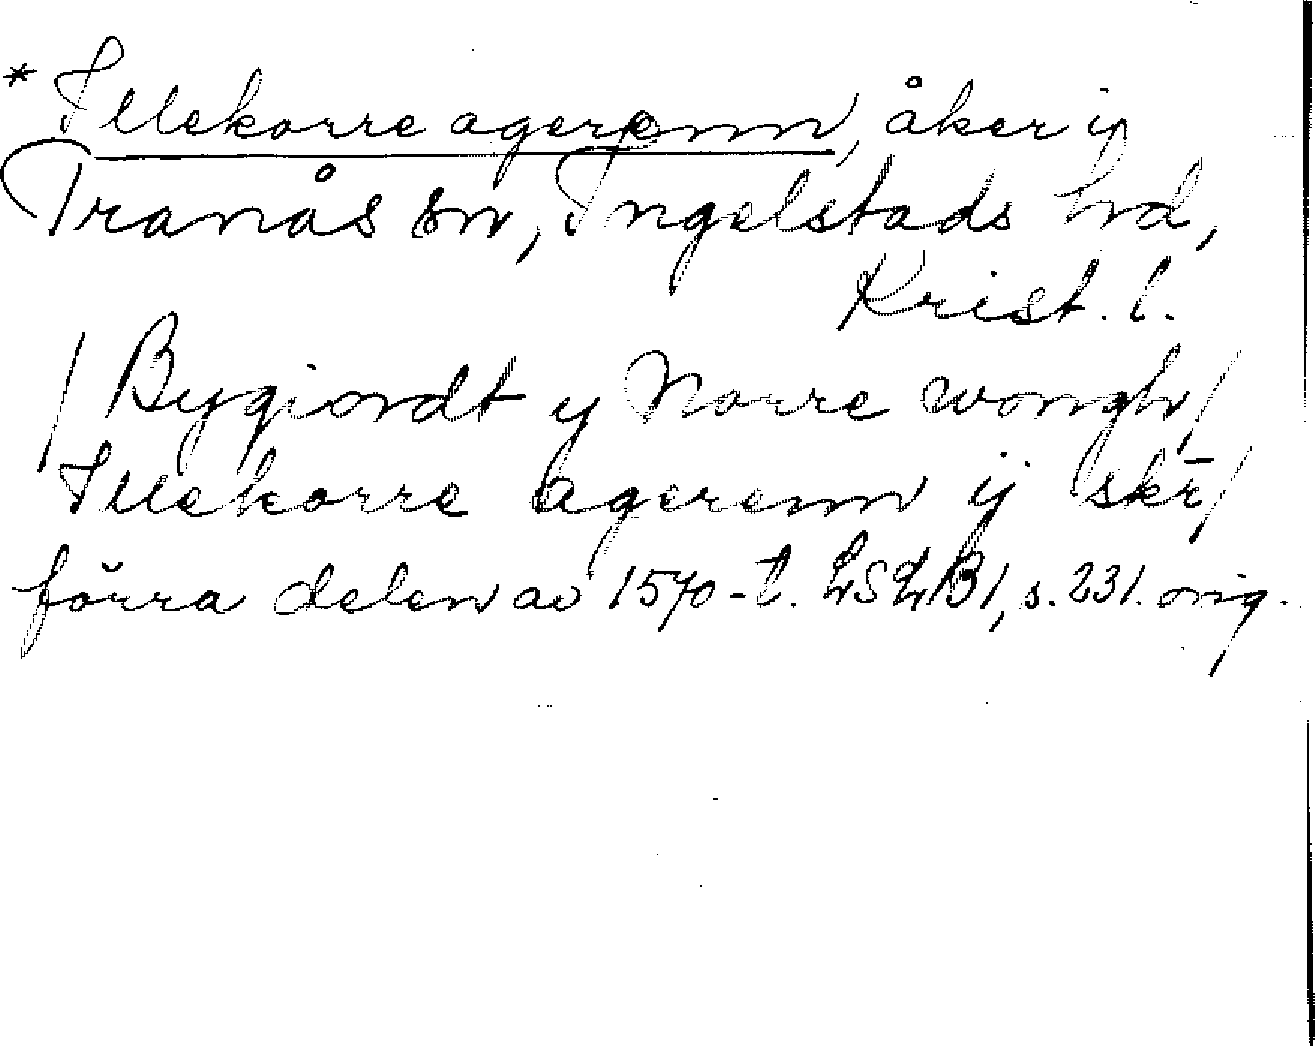 * Illekorre agerenn, åker i
Tranås sn, Ingelstads hd,
Krist. l.
/ Bygiordt y Norre wongh/
Illekorre agerenn ij skr/
förra delen av 1570-t. LSLB1, s. 231. orig.